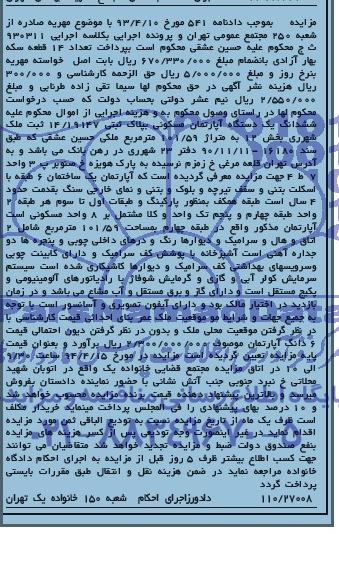 مزایده بموجب دادنامه ۵۴۱ مورخ ۹۳/۴/۱۰ با موضوع مهریه صادره از
شعبه ۲۵۰ مجتمع عمومی تهران و پرونده اجرایی بکلاسه اجرایی ۹۳۰۳۱۱
ث ج محکوم علیه حسین عشقی محکوم است بپرداخت تعداد ۱۴ قطعه سکه
بهار آزادی بانضمام مبلغ ۶۷۰/۳۳۰/۰۰۰ ریال بابت اصل خواسته مهریه
بنرخ روز و مبلغ ۵/۰۰۰/۰۰۰ ریال حق الزحمه کارشناسی و ۳۰۰/۰۰۰
ریال هزینه نشر آگهی در حق محکوم لها سیما تقی زاده طرنابی و مبلغ
۲/۵۵۰/۰۰۰ ریال نیم عشر دولتی بحساب دولت که حسب درخواست
محکوم لها در راستای وصول محکوم به و هزینه اجرایی از اموال محکوم علیه
ششدانگ یک دستگاه آپارتمان مسکونی بپلاک ثبتی ۱۴/۱۹۱۴۷ ثبت ملک
شهرری بخش ۱۲ به متراژ ۱۰۱/۵۹ مترمربع ملکی حسین عشقی که طبق
سند ۱۶۱۸۰ - ۹۰/۱۱/۱۱ دفتر ۲۳ شهرری در رهن بانک می باشد و به
آدرس تهران قلعه مرغی خ زمزم نرسیده به پارک هویزه خ صنوبر پ ۳ واحد
۸ ط ۴ جهت مزایده معرفی گردیده است که آپارتمان یک ساختمان ۶ طبقه با
اسکلت بتنی و سقف تیرچه و بلوک و بتنی و نمای خارجی سنگ بقدمت حدود
۴ سال است طبقه همکف بمنظور پارکینگ و طبقات اول تا سوم هر طبقه ۲
واحد طبقه چهارم و پنجم تک واحد و کلا مشتمل بر ۸ واحد مسکونی است
آپارتمان مذکور واقع در طبقه چهارم بمساحت ۱۰۱/۵۹ مترمربع شامل ۲
اتاق و هال و سرامیک و دیوارها رنگ و درهای داخلی چوبی و پنجره ها دو
جداره آهنی است آشپزخانه با پوشش کف سرامیک و دارای کابینت چوبی
وسرویسهای بهداشتی کف سرامیک و دیوارها کاشیکاری شده است سیستم
سرمایش کولر آبی و گازی و گرمایش شوفاژ با رادیاتورهای آلومینیومی و
پکیج مستقل است و دارای گاز و برق مستقل و آب مشاع می باشد و در زمان
بازدید در اختیار مالک بود و دارای آیفون تصویری و آسانسور است با توجه
به جمیع جهات و شرایط مو موقعیت ملک عمر بنای احداثی قیمت کارشناسی با
در نظر گرفتن موقعیت محلی ملک و بدون در نظر گرفتن دیون احتمالی قیمت
۶ دانگ آپارتمان موصوف ریال برآورد
پایه مزایده تعیین گردیده است مزایده در مورخ ۹۴/۴/۱۵ ساعت ۹/۳۰
الی ۱۰ در اتاق مزایده مجتمع قضایی خانواده یک واقع در اتوبان شهید
محلاتی خ نبرد جنوبی جنب آتش نشانی با حضور نماینده دادستان بفروش
میرسد و بالاترین پیشنهاد دهنده قیمت برنده مزایده محسوب خواهد شد
و ۱۰ درصد بهای پیشنهادی را فی المجلس پرداخت مینماید خریدار مکلف
است ظرف یک ماه از تاریخ مزایده نسبت به تودیع الباقی ثمن مورد مزایده
اقدام نماید در غیر اینصورت وجه تودیعی پس از کسر هزینه های مزایده
بنفع صندوق دولت ضبط و مزایده تجدید خواهد شد متقاضیان می توانند
جهت کسب اطلاع بیشتر ظرف ۵ روز قبل از مزایده به اجرای احکام دادگاه
خانواده مراجعه نماید در ضمن هزینه نقل و انتقال طبق مقررات بایستی
پرداخت گردد
۱۱۰/۲۷۰۰۸ دادورزاجرای احکام شعبه ۱۵۰ خانواده یک تهران